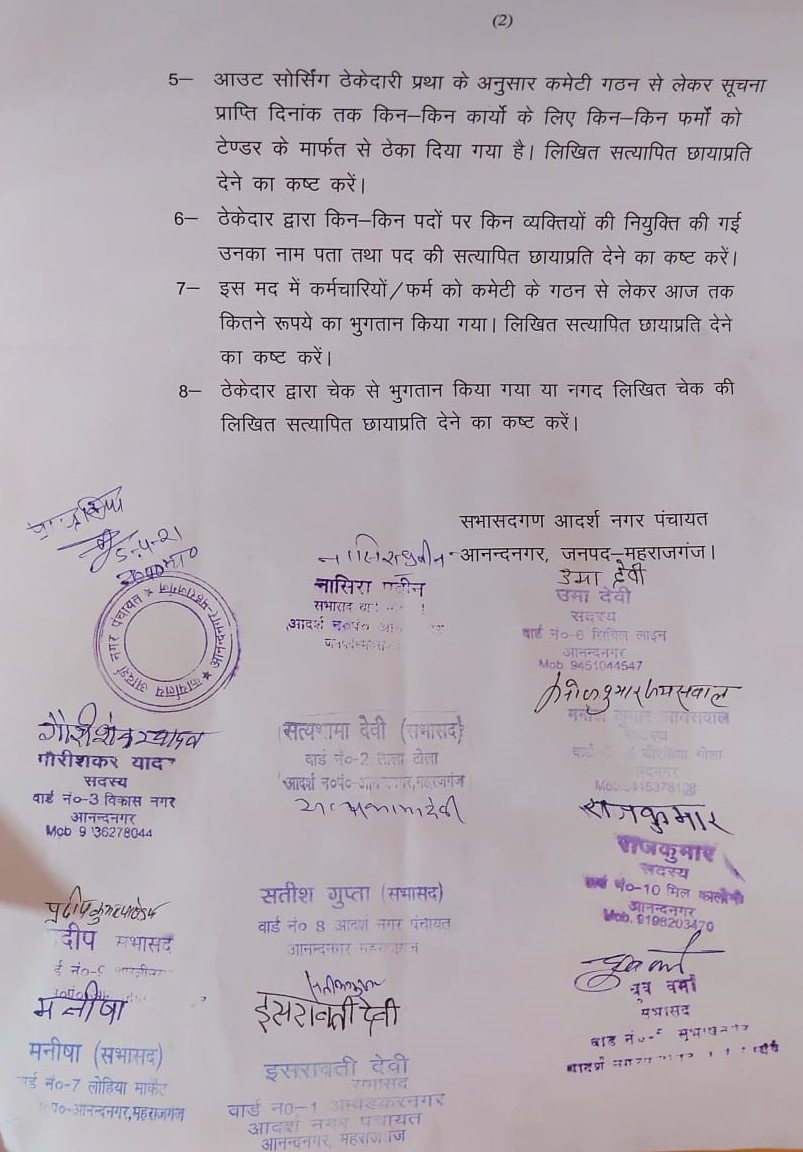 (2)
5– आउट सोर्सिंग ठेकेदारी प्रथा के अनुसार कमेटी गठन से लेकर सूचना
प्राप्ति दिनांक तक किन–किन कार्यो के लिए किन–किन फर्मों को
टेण्डर के मार्फत से ठेका दिया गया है। लिखित सत्यापित छायाप्रति
देने का कष्ट करें।
6– ठेकेदार द्वारा किन–किन पदों पर किन व्यक्तियों की नियुक्ति की गई
उनका नाम पता तथा पद की सत्यापित छायाप्रति देने का कष्ट करें।
7– इस मद में कर्मचारियों/फर्म को कमेटी के गठन से लेकर आज तक
कितने रूपये का भुगतान किया गया। लिखित सत्यापित छायाप्रति देने
का कष्ट करें।
8– ठेकेदार द्वारा चेक से भुगतान किया गया या नगद लिखित चेक की
लिखित सत्यापित छायाप्रति देने का कष्ट करें।
सभासदगण आदर्श नगर पंचायत
आनन्दनगर, जनपद–महराजगंज।
5-4-21
कार्यालय आदर्श नगर पंचायत
नासिरा
सभासद
आदर्श न०पं०
उमा देवी
उमा देवी
सदस्य
वार्ड नं०-6 सिविल लाइन
आनन्दनगर
Mob 9451044547
गौरीशंकर यादव
गौरीशकर याद
सदस्य
वार्ड नं०-3 विकास नगर
आनन्दनगर
Mob 9136278044
सत्यभामा देवी (सभासद)
वार्ड नं०-2 लाला टोला
आदर्श न०पं०
सत्यभामा देवी
सदस्य
राजकुमार
राजकुमार
सदस्य
वार्ड नं०-10 मिल कालोनी
आनन्दनगर
Mob. 9198203470
दीप सभासद
सतीश गुप्ता (सभासद)
वार्ड नं० 8 आदर्श नगर पंचायत
आनन्दनगर
वर्मा
सभासद
मनीषा
मनीषा (सभासद)
वार्ड नं०-7 लोहिया मार्केट
पं०-आनन्दनगर,महराजगंज
इसरावती देवी
इसरावती देवी
सभासद
वार्ड न०-1 अम्बेडकरनगर
आदर्श नगर पंचायत
आनन्दनगर, महराजगंज